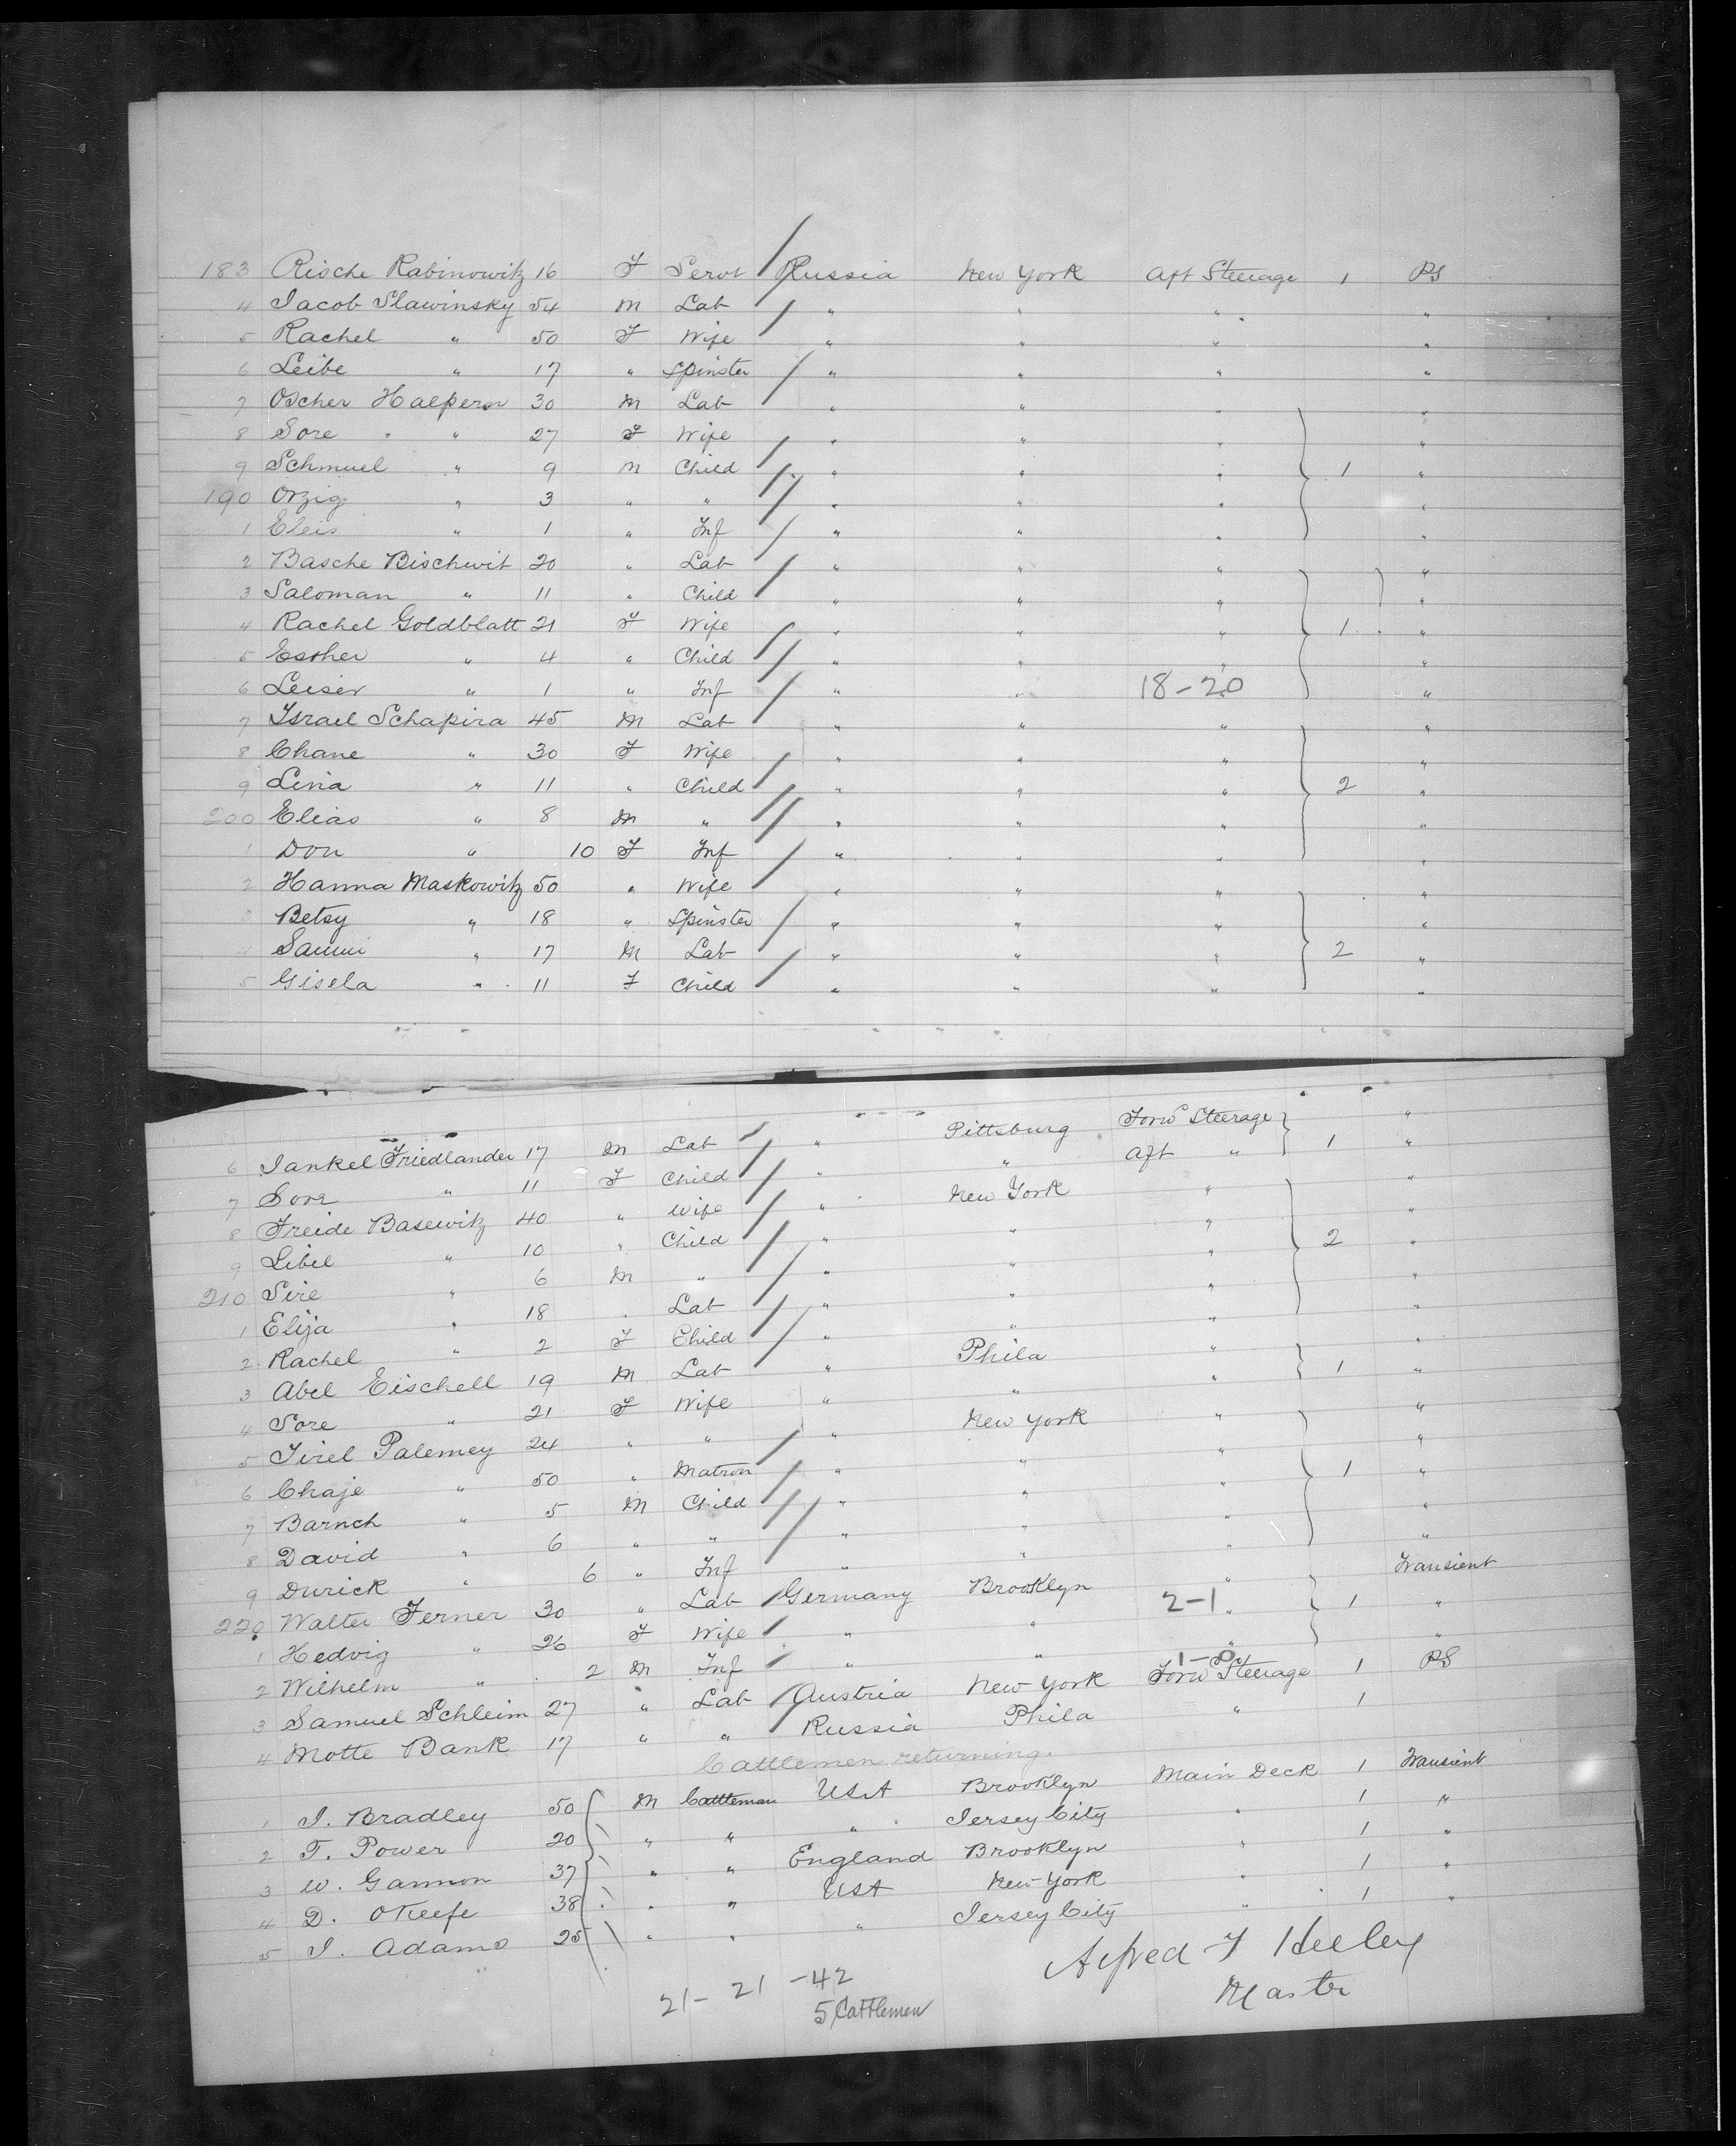 183 Rische Rabinowitz 16 F Servt Russia New York Aft Steerage 1 PS
4 Jacob Slawinsky 54 M Lab " " " "
5 Rachel " 50 F Wife " " " "
6 Leibe " 17 " Spinster " " " "
7 Oscher Halpern 30 M Lab " " " "
8 Sore " 27 F Wife " " " "
9 Schmuel " 9 M Child " " " 1 "
190 Orzig " 3 " " " " " "
1 Eleis " 1 " Inf " " " "
2 Basche Bischwit 20 " Lab " " " "
3 Saloman " 11 " Child " " " "
4 Rachel Goldblatt 21 F Wife " " " 1 "
5 Esther " 4 " Child " " " "
6 Leiser " 1 " Inf " " 18-20 "
7 Israel Schapira 45 M Lab " " " "
8 Chane " 30 F Wife " " " "
9 Lina " 11 " Child " " " 2 "
200 Elias " 8 M " " " " "
1 Don " 10 F Inf " " " "
2 Hanna Maskowitz 50 " Wife " " " "
3 Betsy " 18 " Spinster " " " "
4 Sammi " 17 M Lab " " " 2 "
5 Gisela " 11 F Child " " " "
6 Jankel Friedlander 17 M Lab " Pittsburg Forw Steerage "
7 Sore " 11 F Child " " Aft " 1 "
8 Freide Basewitz 40 " Wife " New York " "
9 Libel " 10 " Child " " " "
210 Sire " 6 M " " " " 2 "
1 Elija " 18 " Lab " " " "
2 Rachel " 2 F Child " " " "
3 Abel Eischell 19 M Lab " Phila " "
4 Sore " 21 F Wife " " " 1 "
5 Tirel Palemey 24 " " " New York " "
6 Chaje " 50 " Matron " " " "
7 Barnch " 5 M Child " " " 1 "
8 David " 6 " " " " " "
9 Durick " 6 " Inf " " " "
220 Walter Ferner 30 " Lab Germany Brooklyn " Transient
1 Hedvig " 26 F Wife " " 2-1 " 1 "
2 Wilhelm " 2 M Inf " " " "
1-0
3 Samuel Schleim 27 " Lab Austria New York Forw Steerage 1 PS
4 Motte Bank 17 " " Russia Phila " 1
Cattlemen returning.
1 J. Bradley 50 M Cattleman USA Brooklyn Main Deck 1 Transient
2 T. Power 20 " " " Jersey City " 1 "
3 W. Gannon 37 " " England Brooklyn " 1 "
4 D. OKeefe 38 " " USA New York " 1 "
5 J. Adams 25 " " " Jersey City " 1 "
Alfred F Keeley
Master
21- 21 -42
5 Cattlemen